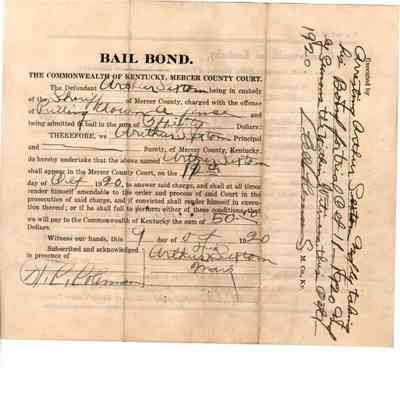 BAIL BOND.
THE COMMONWEALTH OF KENTUCKY, MERCER COUNTY COURT.
The Defendant Arthur Sexton being in custody
of the Sheriff of Mercer County, charged with the offense
of Pulling down a fence and
being admitted to bail in the sum of Dollars:
THEREFORE, we Arthur Sexton Principal
and Surety, of Mercer County, Kentucky,
do hereby undertake that the above named Arthur Sexton
shall appear in the Mercer County Court, on the
day of Oct 1920, to answer said charge, and shall at all times
render himself amendable to the order and process of said Court in the
prosecution of said charge, and if convicted shall render himself in execu-
tion thereof; or if he shall fail to perform either of these conditions, that
we will pay to the Commonwealth of Kentucky the sum of 50.00
Dollars.
Witness our hands, this 9 day of Oct 1920
Subscribed and acknowledged his
in presence of Arthur Sexton
mark
Executed by
Arresting Arthur Sexton
his Bond Oct 11 - 1920
1920.
S. M. Co. Ky.